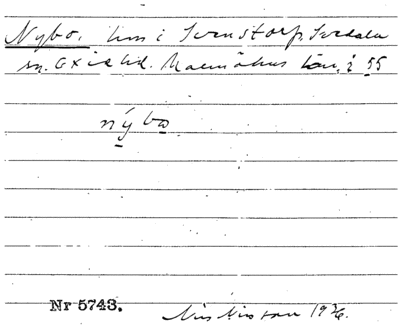 Nybo. hus i Svenstorp, Svedala
sn. Oxie hd. Malmöhus län. i 55
nýbo
Nr 5743.
Nils Nilsson 19